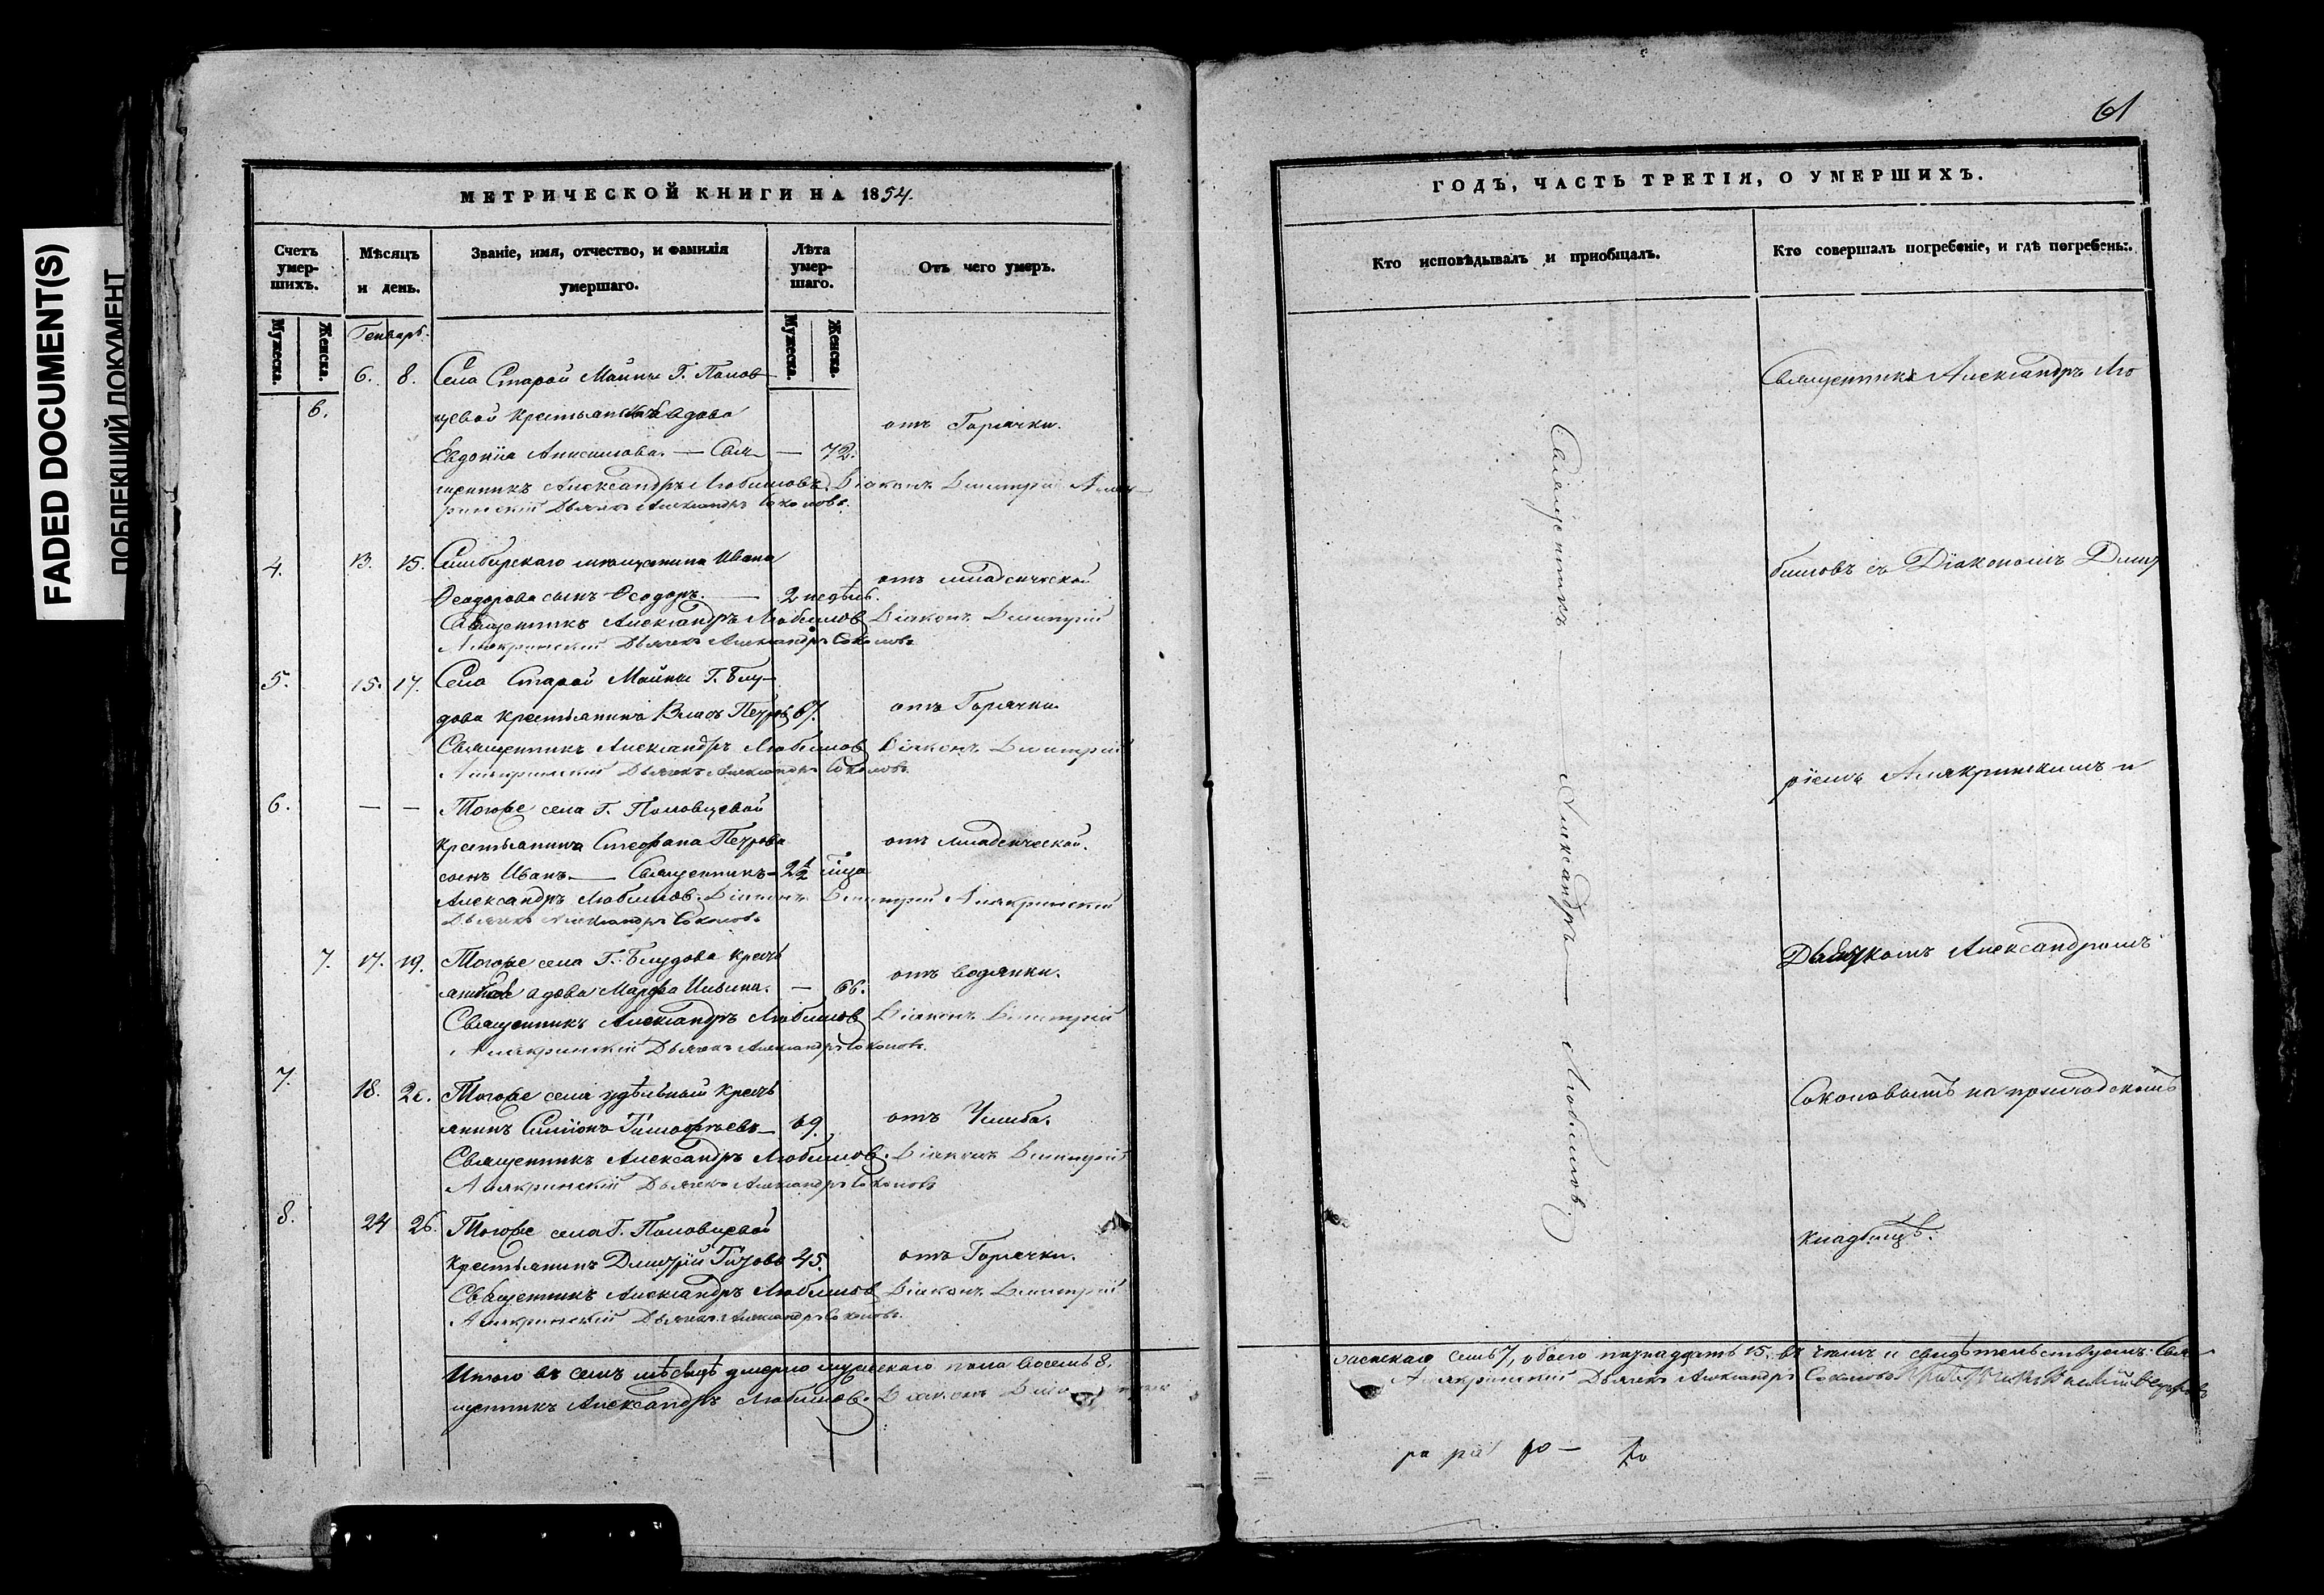 FADED DOCUMENT(S)
ПОБЛЕКШИЙ ДОКУМЕНТ
МЕТРИЧЕСКОЙ КНИГИ НА 1854.
Счетъ умер-шихъ.
Мѣсяцъ и день.
Званіе, имя, отчество, и фамилія умершаго.
Лѣта умер-шаго.
Отъ чего умеръ.
Мужеска. Женска.
Мужеска. Женска.
Генварь.
6. 8. Села Старой Майны Г. Полов-
6. цевой крестьянская вдова
отъ Горячки.
Евдокія Анисимова. — Свя- — 72.
щенникъ Александръ Любимовъ Діаконъ Димитрій Алак-
ринскій Дьячекъ Александръ Соколовъ.
4. 13. 15. Симбирскаго мѣщанина Ивана
отъ младенческой
Ѳеодорова сынъ Ѳеодоръ. — 2 недѣль.
Священникъ Александръ Любимовъ Діаконъ Димитрій
Алакринскій Дьячекъ Александръ Соколовъ
5. 15. 17. Села Старой Майны Г. Блу-
дова крестьянинъ Власъ Петровъ 67. отъ Горячки
Священникъ Александръ Любимовъ Діаконъ Димитрій
Алакринскій Дьячекъ Александръ Соколовъ.
6. — — Тогоже села Г. Половцевой
крестьянина Стефана Петрова отъ младенческой.
сынъ Иванъ. — Священникъ 2 1/2 года
Александръ Любимовъ Діаконъ Димитрій Алакринскій
Дьячекъ Александръ Соколовъ
7. 17. 19. Тогоже села Г. Блудова кресть
янская вдова Марфа Ильина. — 66. отъ водянки.
Священникъ Александръ Любимовъ Діаконъ Димитрій
Алакринскій Дьячекъ Александръ Соколовъ.
7. 18. Тогоже села удѣльный кресть
янинъ Симіонъ Тимофеевъ — 69. отъ Ушиба.
Священникъ Александръ Любимовъ. Діаконъ Димитрій
Алакринскій Дьячекъ Александръ Соколовъ
8. 24 26. Тогоже села Г. Половцевой
крестьянинъ Дмитрій 45. отъ Горячки.
Священникъ Александръ Любимовъ Діаконъ Димитрій
Алакринскій Дьячекъ Александръ Соколовъ.
Итого въ семъ мѣсяцѣ умерло мужескаго пола восемь 8.
щенникъ Александръ Любимовъ. Діаконъ
61
ГОДЪ, ЧАСТЬ ТРЕТІЯ, О УМЕРШИХЪ.
Кто исповѣдывалъ и пріобщалъ.
Кто совершалъ погребеніе, и гдѣ погребены.
Священникъ — Александръ — Любимовъ
Священникъ Александръ Лю
бимовъ съ Діакономъ Димит
ріемъ Алакринскимъ и
Дьячкомъ Александромъ
Соколовымъ на приходскомъ
кладбищѣ.
женскаго семь 7, обоего пятнадцать 15. въ чемъ и свидѣтельствуемъ: Свя-
Алакринскій Дьячекъ Александръ Соколовъ
ра ра ро —